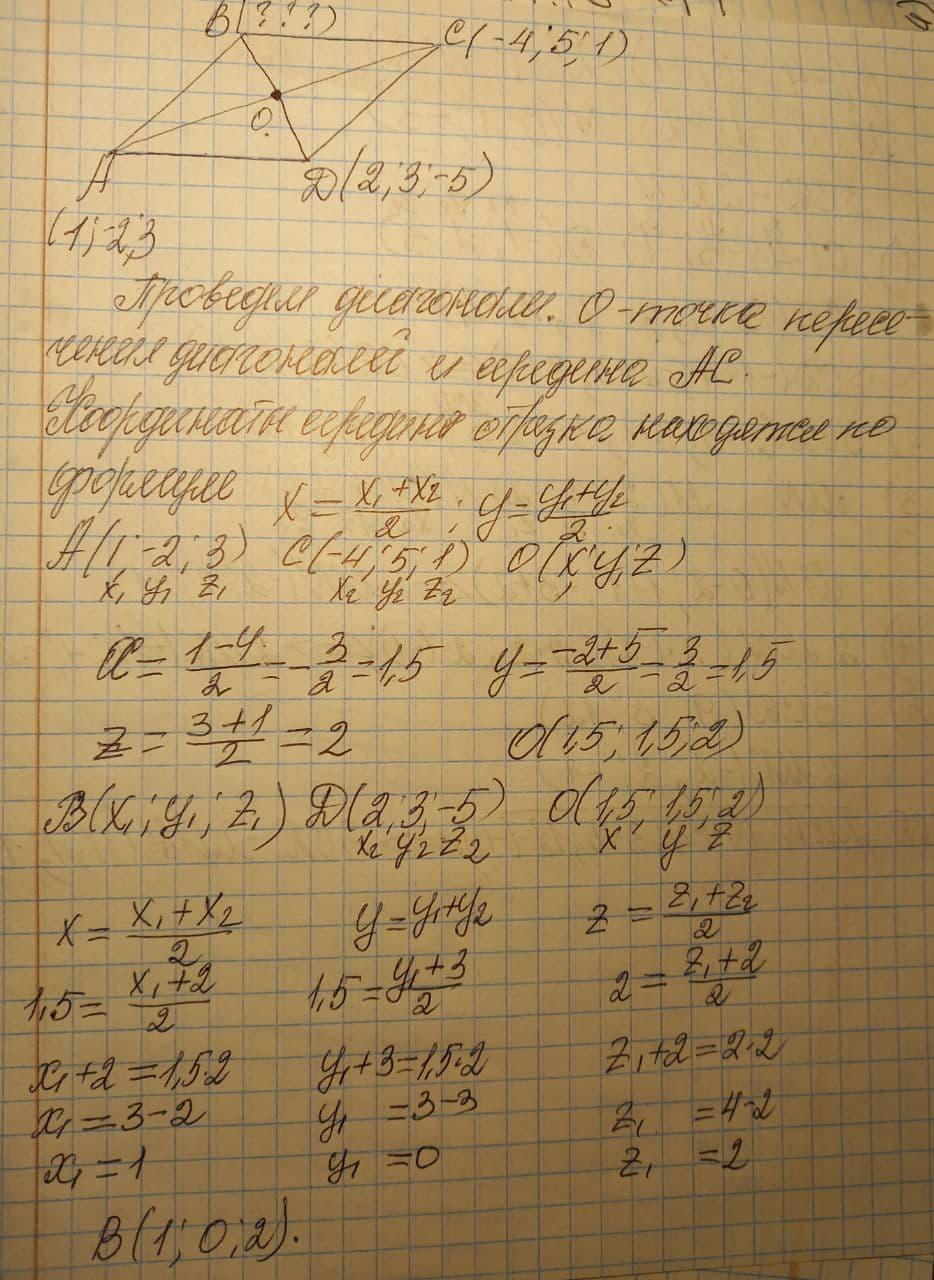 B(???)
C(-4;5;1)
O
A
D(2;3;-5)
(1;-2;3
Проведем диагонали. О-точка пересе-
чения диагоналей и середина AC.
Координаты середины отрезка находятся по
формуле x = (x₁+x₂)/2; y = (y₁+y₂)/2.
A(1;-2;3) C(-4;5;1) O(x;y;z)
x₁ y₁ z₁ x₂ y₂ z₂
x = (1-4)/2 = -3/2 = 1,5 y = (-2+5)/2 = 3/2 = 1,5
z = (3+1)/2 = 2 O(1,5; 1,5; 2)
B(x₁; y₁; z₁) D(2;3;-5) O(1,5; 1,5; 2)
x₂ y₂ z₂ x y z
x = (x₁+x₂)/2 y = y₁+y₂ z = (z₁+z₂)/2
1,5 = (x₁+2)/2 1,5 = (y₁+3)/2 2 = (z₁+2)/2
x₁+2 = 1,5·2 y₁+3 = 1,5·2 z₁+2 = 2·2
x₁ = 3-2 y₁ = 3-3 z₁ = 4-2
x₁ = 1 y₁ = 0 z₁ = 2
B(1; 0; 2).